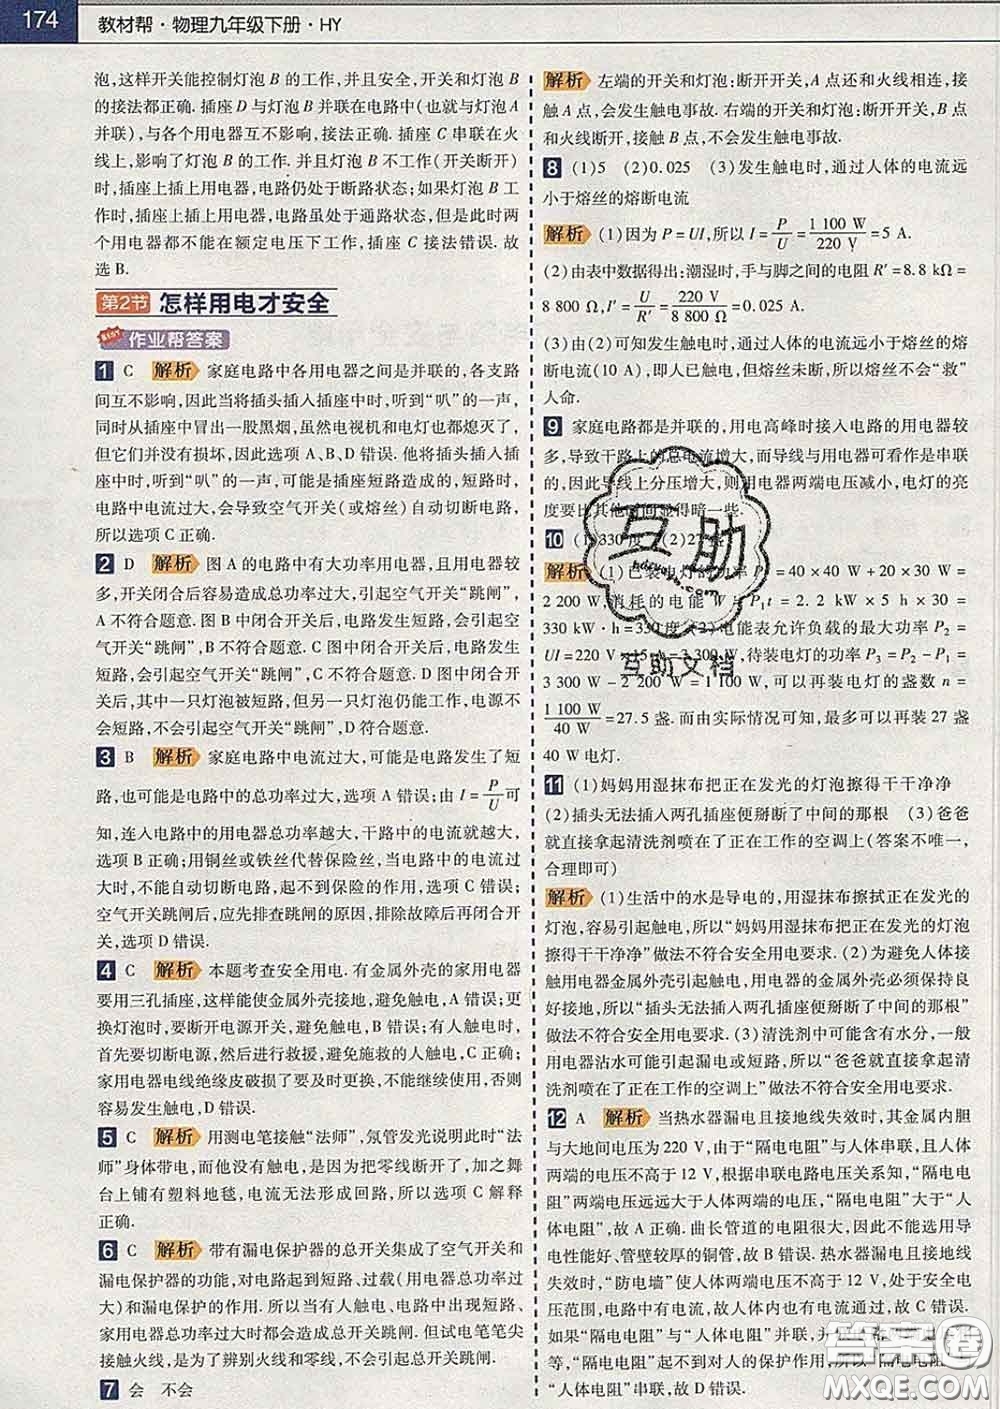 174
教材帮·物理九年级下册·HY
泡,这样开关能控制灯泡 B 的工作,并且安全,开关和灯泡 B
的接法都正确. 插座 D 与灯泡 B 并联在电路中(也就与灯泡 A
并联),与各个用电器互不影响,接法正确. 插座 C 串联在火
线上,影响了灯泡 B 的工作. 并且灯泡 B 不工作(开关断开)
时,插座上插上用电器,电路仍处于断路状态;如果灯泡 B 工
作时,插座上插上用电器,电路虽处于通路状态,但是此时两
个用电器都不能在额定电压下工作,插座 C 接法错误. 故
选 B.
第2节 怎样用电才安全
作业帮答案
1 C 解析 家庭电路中各用电器之间是并联的,各支路
间互不影响,因此当将插头插入插座中时,听到“叭”的一声,
同时从插座中冒出一股黑烟,虽然电视机和电灯也都熄灭了,
但并没有损坏,因此选项 A、B、D 错误. 他将插头插入插
座中时,听到“叭”的一声,可能是插座短路造成的,短路时,
电路中电流过大,会导致空气开关(或熔丝)自动切断电路,
所以选项 C 正确.
2 D 解析 图 A 的电路中有大功率用电器,且用电器较
多,开关闭合后容易造成总功率过大,引起空气开关“跳闸”,
A 不符合题意. 图 B 中开关闭合后,电路短路,会引起空气开
关“跳闸”,B 不符合题意. C 图中开关闭合后,电路短路,
会引起空气开关“跳闸”,C 不符合题意. D 图中开关闭合
后,其中一只灯泡被短路,但另一只灯泡仍能工作,电源不
会短路,不会引起空气开关“跳闸”,D 符合题意.
3 B 解析 家庭电路中电流过大,可能是电路发生了短
路,也可能是电路中的总功率过大,选项 A 错误;由 I=P/U可
知,连入电路中的用电器总功率越大,干路中的电流就越大,
选项 B 正确;用铜丝或铁丝代替保险丝,当电路中的电流过
大时,不能自动切断电路,起不到保险的作用,选项 C 错误;
空气开关跳闸后,应先排查跳闸的原因,排除故障后再闭合开
关,选项 D 错误.
4 C 解析 本题考查安全用电. 有金属外壳的家用电器
要用三孔插座,这样能使金属外壳接地,避免触电,A 错误;更
换灯泡时,要断开电源开关,避免触电,B 错误;有人触电时,
首先要切断电源,然后进行救援,避免施救的人触电,C 正确;
家用电器电线绝缘皮破损了要及时更换,不能继续使用,否则
容易发生触电,D 错误.
5 C 解析 用测电笔接触“法师”,氖管发光说明此时“法
师”身体带电,而他没有触电,是因为把零线断开了,加之舞
台上铺有塑料地毯,电流无法形成回路,所以选项 C 解释
正确.
6 C 解析 带有漏电保护器的总开关集成了空气开关和
漏电保护器的功能,对电路起到短路、过载(用电器总功率过
大)和漏电保护的作用. 所以当有人触电、电路中出现短路、
家用电器总功率过大时都会造成总开关跳闸. 但试电笔笔尖
接触火线,是为了辨别火线和零线,不会引起总开关跳闸.
7 会 不会
解析 左端的开关和灯泡:断开开关,A 点还和火线相连,接
触 A 点,会发生触电事故. 右端的开关和灯泡:断开开关,B 点
和火线断开,接触 B 点,不会发生触电事故.
8 (1)5 (2)0.025 (3)发生触电时,通过人体的电流远
小于熔丝的熔断电流
解析 (1)因为 P=UI,所以 I=P/U=1 100 W/220 V=5 A.
(2)由表中数据得出:潮湿时,手与脚之间的电阻 R′=8.8 kΩ=
8 800 Ω,I′=U/R′=220 V/8 800 Ω=0.025 A.
(3)由(2)可知发生触电时,通过人体的电流远小于熔丝的熔
断电流(10 A),即人已触电,但熔丝未断,所以熔丝不会“救”
人命.
9 家庭电路都是并联的,用电高峰时接入电路的用电器较
多,导致干路上的总电流增大,而导线与用电器可看作是串联
的,因此导线上分压增大,则用电器两端电压减小,电灯的亮
度要比其他时间显得暗一些.
10 (1)330 度 (2)27 盏
解析 (1)已装电灯的功率 P₁=40×40 W+20×30 W=
2 200 W,消耗的电能 W=P₁t=2.2 kW×5 h×30=
330 kW·h=330 度 (2)电能表允许负载的最大功率 P₂=
UI=220 V×15 A=3 300 W,待装电灯的功率 P₃=P₂-P₁=
3 300 W-2 200 W=1 100 W,可以再装电灯的盏数 n=
1 100 W/40 W=27.5 盏. 而由实际情况可知,最多可以再装 27 盏
40 W 电灯.
11 (1)妈妈用湿抹布把正在发光的灯泡擦得干干净净
(2)插头无法插入两孔插座便掰断了中间的那根 (3)爸爸
就直接拿起清洗剂喷在了正在工作的空调上(答案不唯一,
合理即可)
解析 (1)生活中的水是导电的,用湿抹布擦拭正在发光的
灯泡,容易引起触电,所以“妈妈用湿抹布把正在发光的灯泡
擦得干干净净”做法不符合安全用电要求. (2)为避免人体接
触用电器金属外壳引起触电,用电器的金属外壳必须保持良
好接地,所以“插头无法插入两孔插座便掰断了中间的那根”
做法不符合安全用电要求. (3)清洗剂中可能含有水分,一般
用电器沾水可能引起漏电或短路,所以“爸爸就直接拿起清
洗剂喷在了正在工作的空调上”做法不符合安全用电要求.
12 A 解析 当热水器漏电且接地线失效时,其金属内胆
与大地间电压为 220 V,由于“隔电电阻”与人体串联,且人体
两端的电压不高于 12 V,根据串联电路电压关系知,“隔电电
阻”两端电压远远大于人体两端的电压,“隔电电阻”大于“人
体电阻”,故 A 正确. 曲长管道的电阻很大,因此不能选用导
电性能好、管壁较厚的铜管,故 B 错误. 热水器漏电且接地线
失效时,“防电墙”使人体两端电压不高于 12 V,处于安全电
压范围,电路中有电流,故人体内也有电流通过,故 C 错误.
如果“隔电电阻”与“人体电阻”并联,
等,“隔电电阻”起不到对人的保护作用,
“人体电阻”串联,故 D 错误.
互助
互助文档
答案圈
MXQE.COM